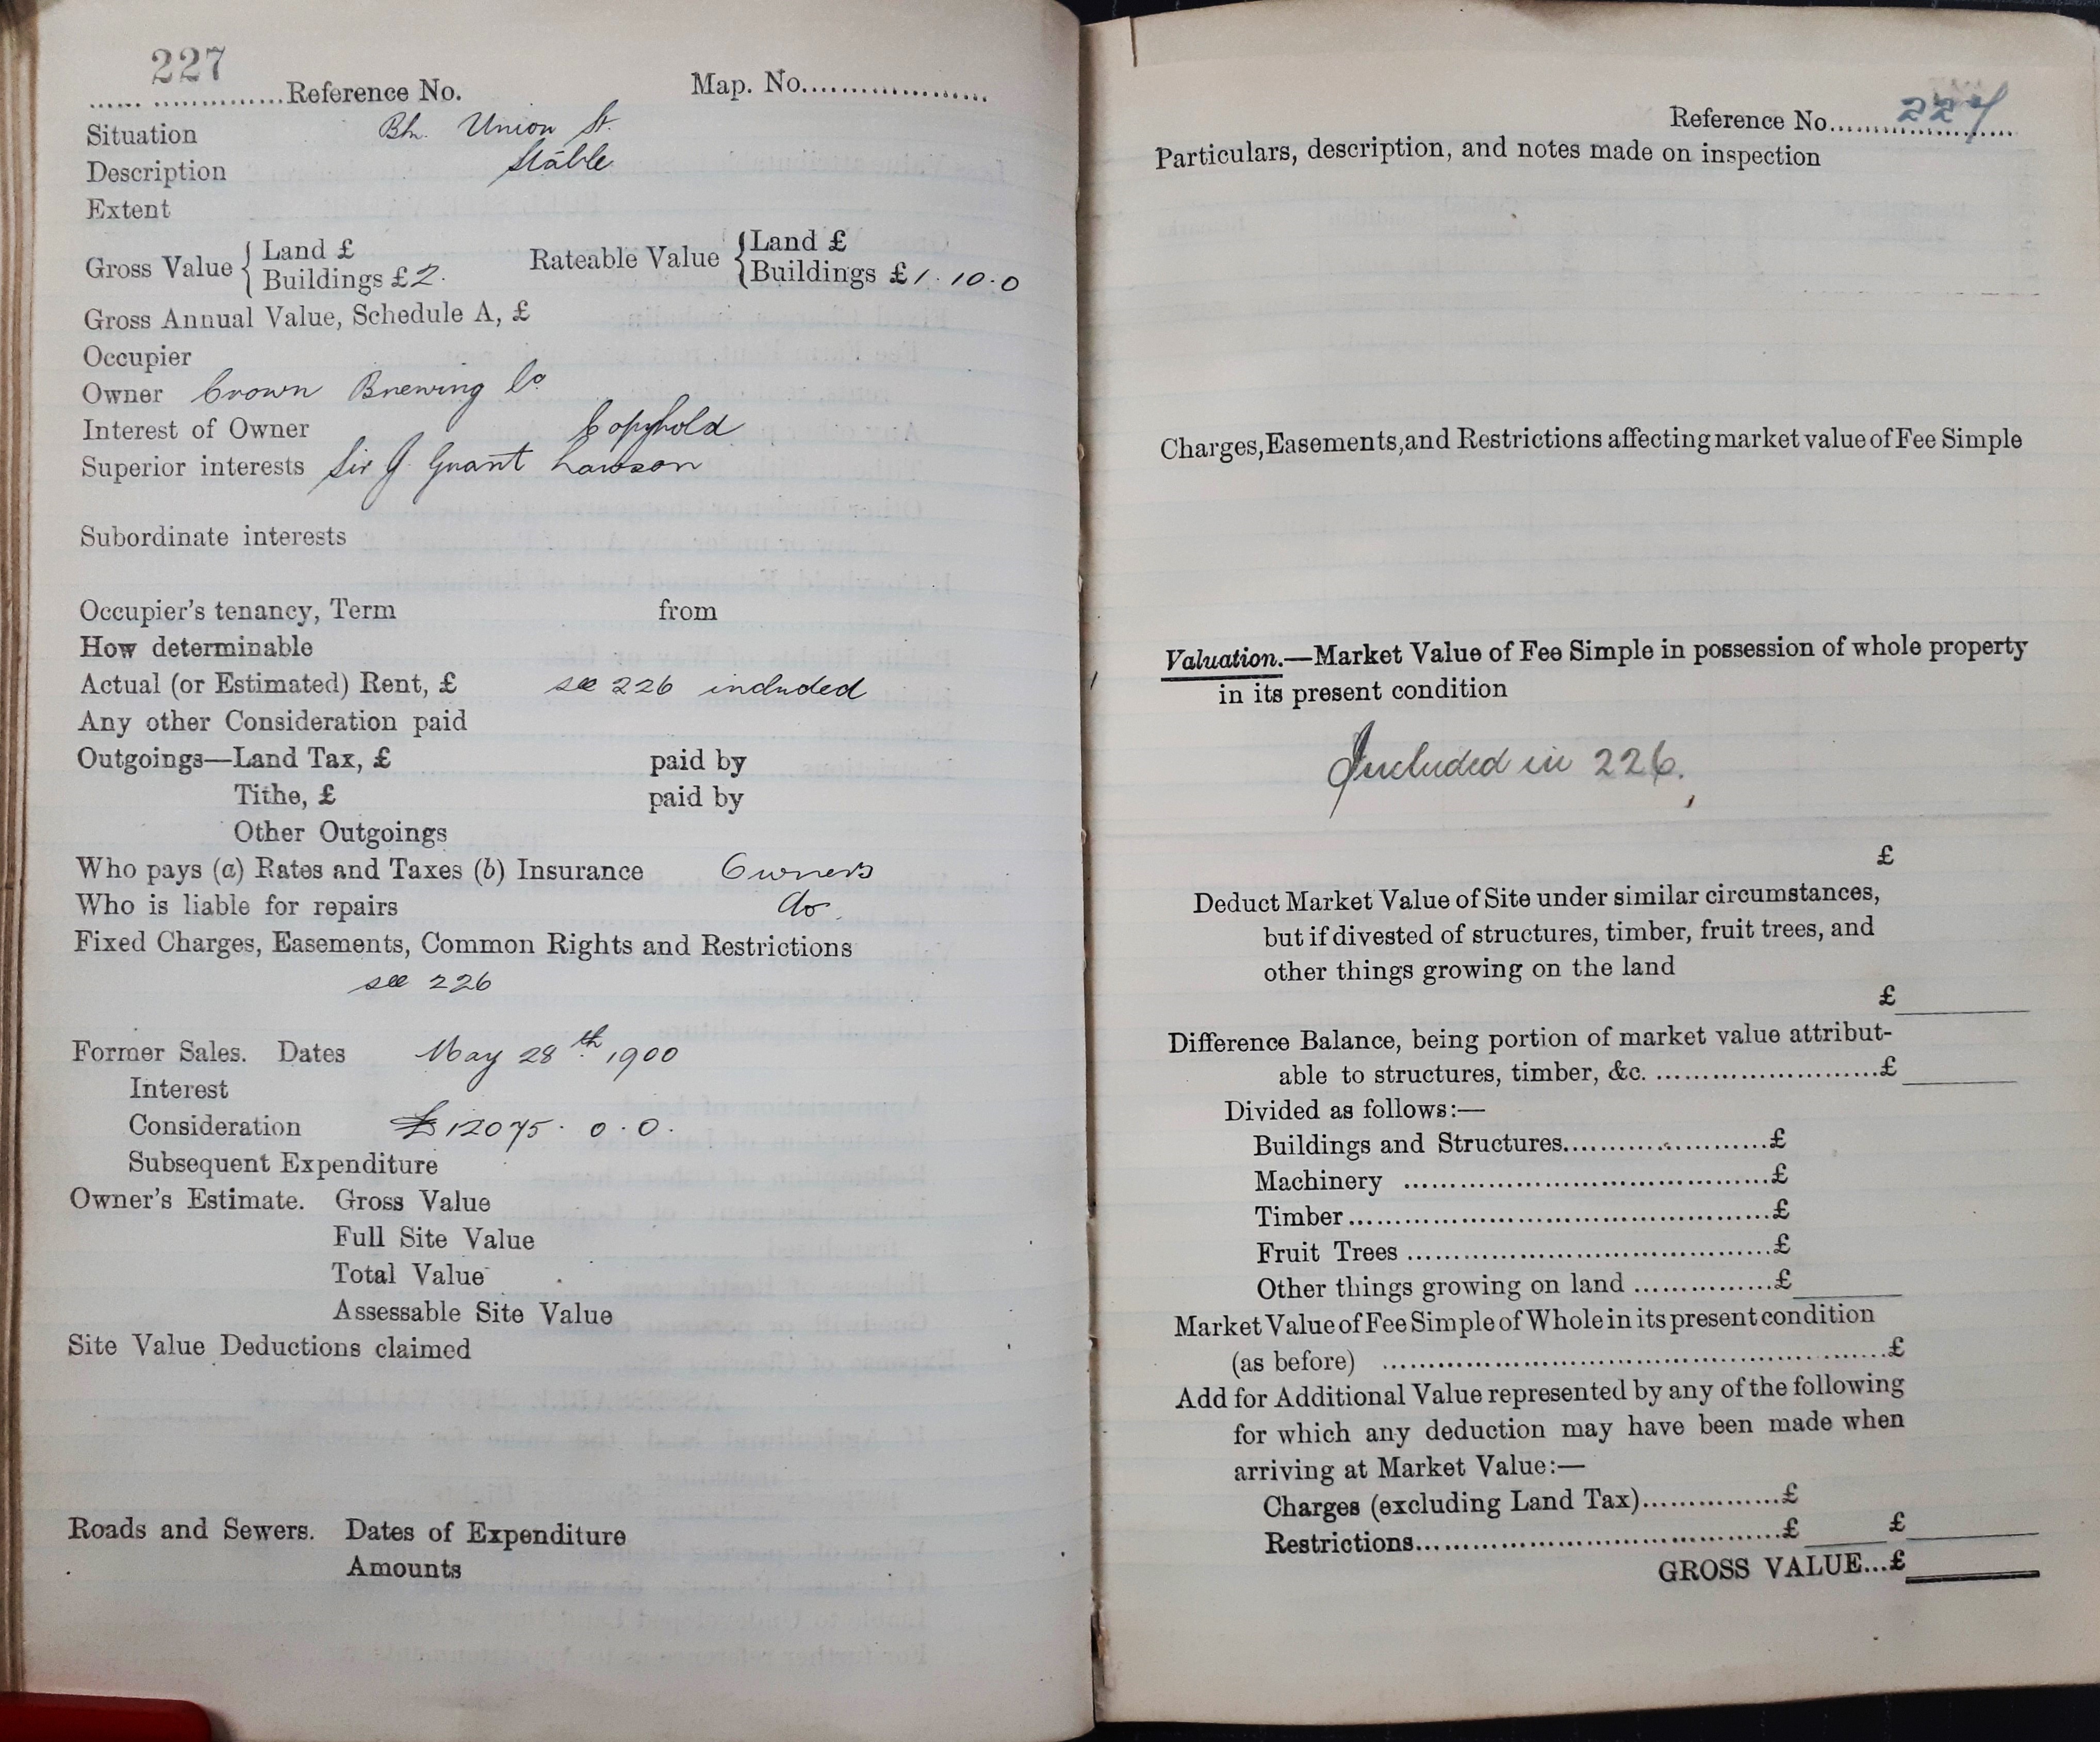 227
Reference No. Map. No.
Situation Bh. Union St.
Description Stable
Extent
Gross Value { Land £ Rateable Value { Land £
Buildings £ 2. Buildings £ 1.10.0
Gross Annual Value, Schedule A, £
Occupier
Owner Crown Brewing Co
Interest of Owner Copyhold
Superior interests Sir J. Grant Lawson
Subordinate interests
Occupier's tenancy, Term from
How determinable
Actual (or Estimated) Rent, £ see 226 included
Any other Consideration paid
Outgoings—Land Tax, £ paid by
Tithe, £ paid by
Other Outgoings
Who pays (a) Rates and Taxes (b) Insurance Owners
Who is liable for repairs do.
Fixed Charges, Easements, Common Rights and Restrictions
see 226
Former Sales. Dates May 28th 1900
Interest
Consideration £12075. 0. 0.
Subsequent Expenditure
Owner's Estimate. Gross Value
Full Site Value
Total Value
Assessable Site Value
Site Value Deductions claimed
Roads and Sewers. Dates of Expenditure
Amounts
Reference No. 227
Particulars, description, and notes made on inspection
Charges, Easements, and Restrictions affecting market value of Fee Simple
Valuation.—Market Value of Fee Simple in possession of whole property
in its present condition
Included in 226.
£
Deduct Market Value of Site under similar circumstances,
but if divested of structures, timber, fruit trees, and
other things growing on the land
£
Difference Balance, being portion of market value attribut-
able to structures, timber, &c. £
Divided as follows:—
Buildings and Structures £
Machinery £
Timber £
Fruit Trees £
Other things growing on land £
Market Value of Fee Simple of Whole in its present condition
(as before) £
Add for Additional Value represented by any of the following
for which any deduction may have been made when
arriving at Market Value:—
Charges (excluding Land Tax) £
Restrictions £ £
GROSS VALUE...£